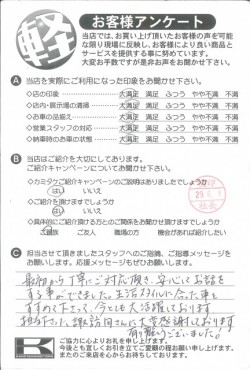 軽
お客様アンケート
当店では、お買い上げ頂いたお客様の声を可能
な限り現場に反映し、お客様により良い商品と
サービスを提供する事に努めています。
大変お手数ですが是非お声をお聞かせ下さい。
A 当店を実際にご利用になった印象をお聞かせ下さい。
◇店の印象 大満足 満足 ふつう やや不満 不満
◇店内・展示場の清掃 大満足 満足 ふつう やや不満 不満
◇お車の品揃え 大満足 満足 ふつう やや不満 不満
◇営業スタッフの対応 大満足 満足 ふつう やや不満 不満
◇納車時のお車の状態 大満足 満足 ふつう やや不満 不満
B 当店はご紹介を大切にしております。
ご紹介キャンペーンについてお聞かせ下さい。
◇カミタケご紹介キャンペーンのご説明はありましたでしょうか
はい いいえ
◇ご紹介を頂けますでしょうか
はい いいえ
◇具体的にご紹介頂ける方とのご関係をお聞かせ頂けますでしょうか
ご親族 ご友人 職場の方 機会があれば紹介したい
C 担当させて頂きましたスタッフへのご指摘、ご指導メッセージを
お願いします。応援メッセージもぜひお願いします。
最初から丁寧にご対応頂き、安心してお話を
する事ができました。生活スタイルに合った車を
すすめて下さって、今とても大活躍しております
担当下さった諏訪田さんに大変感謝しております
有難うございました!
K
ご協力に心よりお礼を申し上げます。
今後とも宜しくお引き立てご愛顧の程お願い申し上げます。
またのご来店を心からお待ちしております。